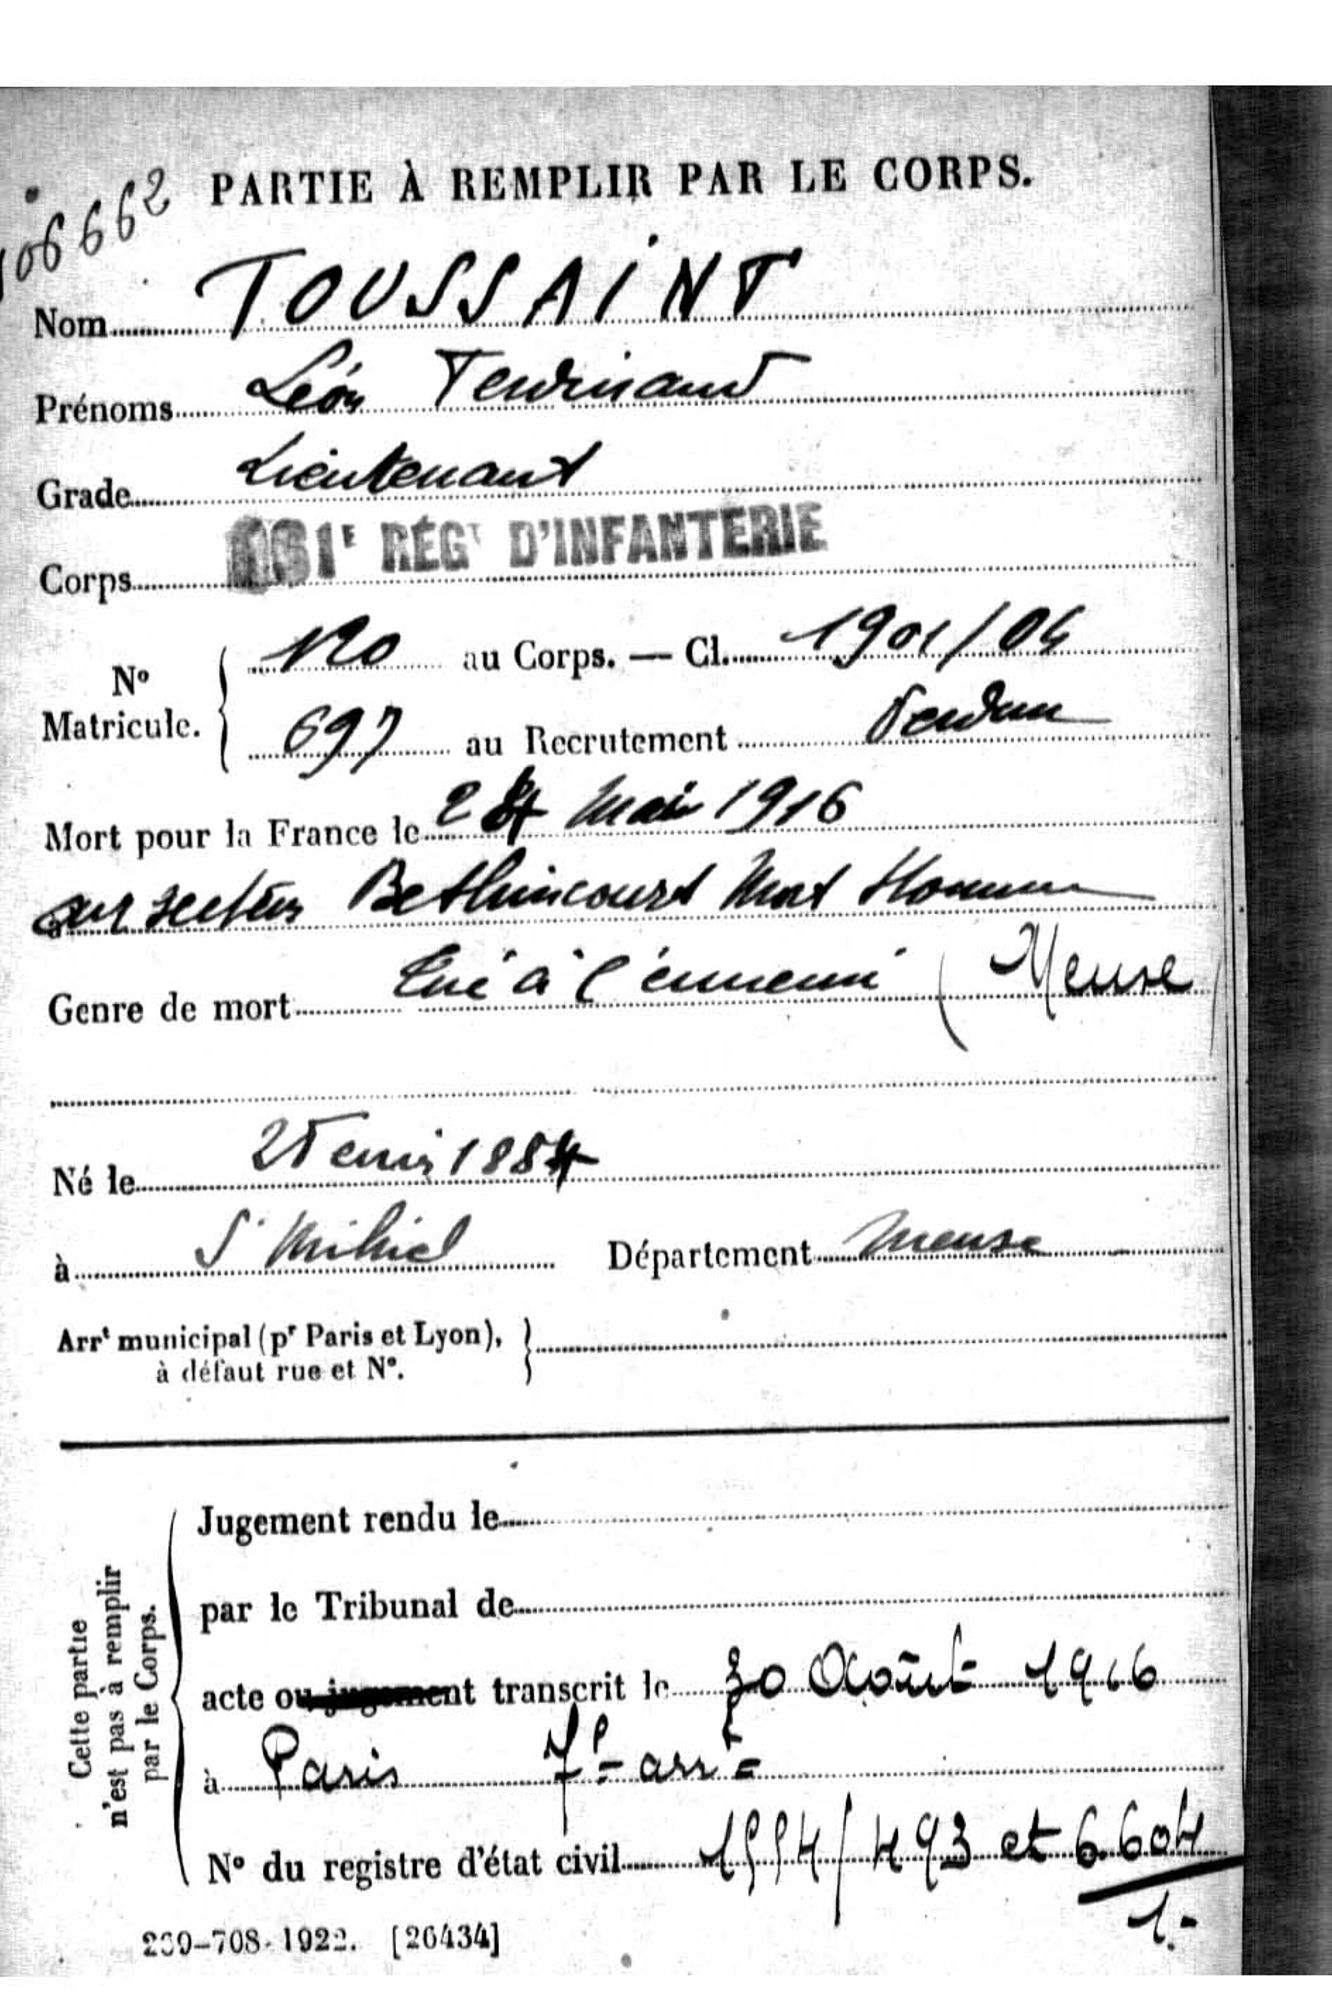 PARTIE À REMPLIR PAR LE CORPS.
106662
Nom TOUSSAINT
Prénoms Léon Ferdinand
Grade Lieutenant
Corps 161E RÉGT D'INFANTERIE
No Matricule. 120 au Corps. — Cl. 1901/04
697 au Recrutement Verdun
Mort pour la France le 24 Mai 1916
secteur Bethincourt Mort Homme
Genre de mort Tué à l'ennemi (Meuse)
Né le 1884
à St Mihiel Département Meuse
Arrt municipal (pr Paris et Lyon), à défaut rue et No.
Cette partie n'est pas à remplir par le Corps.
Jugement rendu le
par le Tribunal de
acte ou jugement transcrit le 30 Août 1916
à Paris 7e arrt
No du registre d'état civil 1994/493 et 6.604
1.-
269-708-1922. [26434]